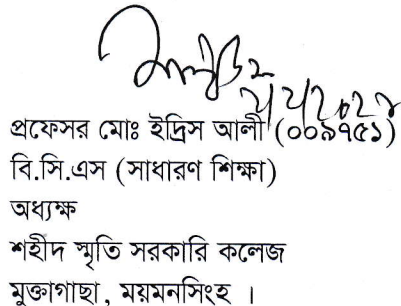 প্রফেসর মোঃ ইদ্রিস আলী (০০৯৭৫১)
বি.সি.এস (সাধারণ শিক্ষা)
অধ্যক্ষ
শহীদ স্মৃতি সরকারি কলেজ
মুক্তাগাছা, ময়মনসিংহ ।